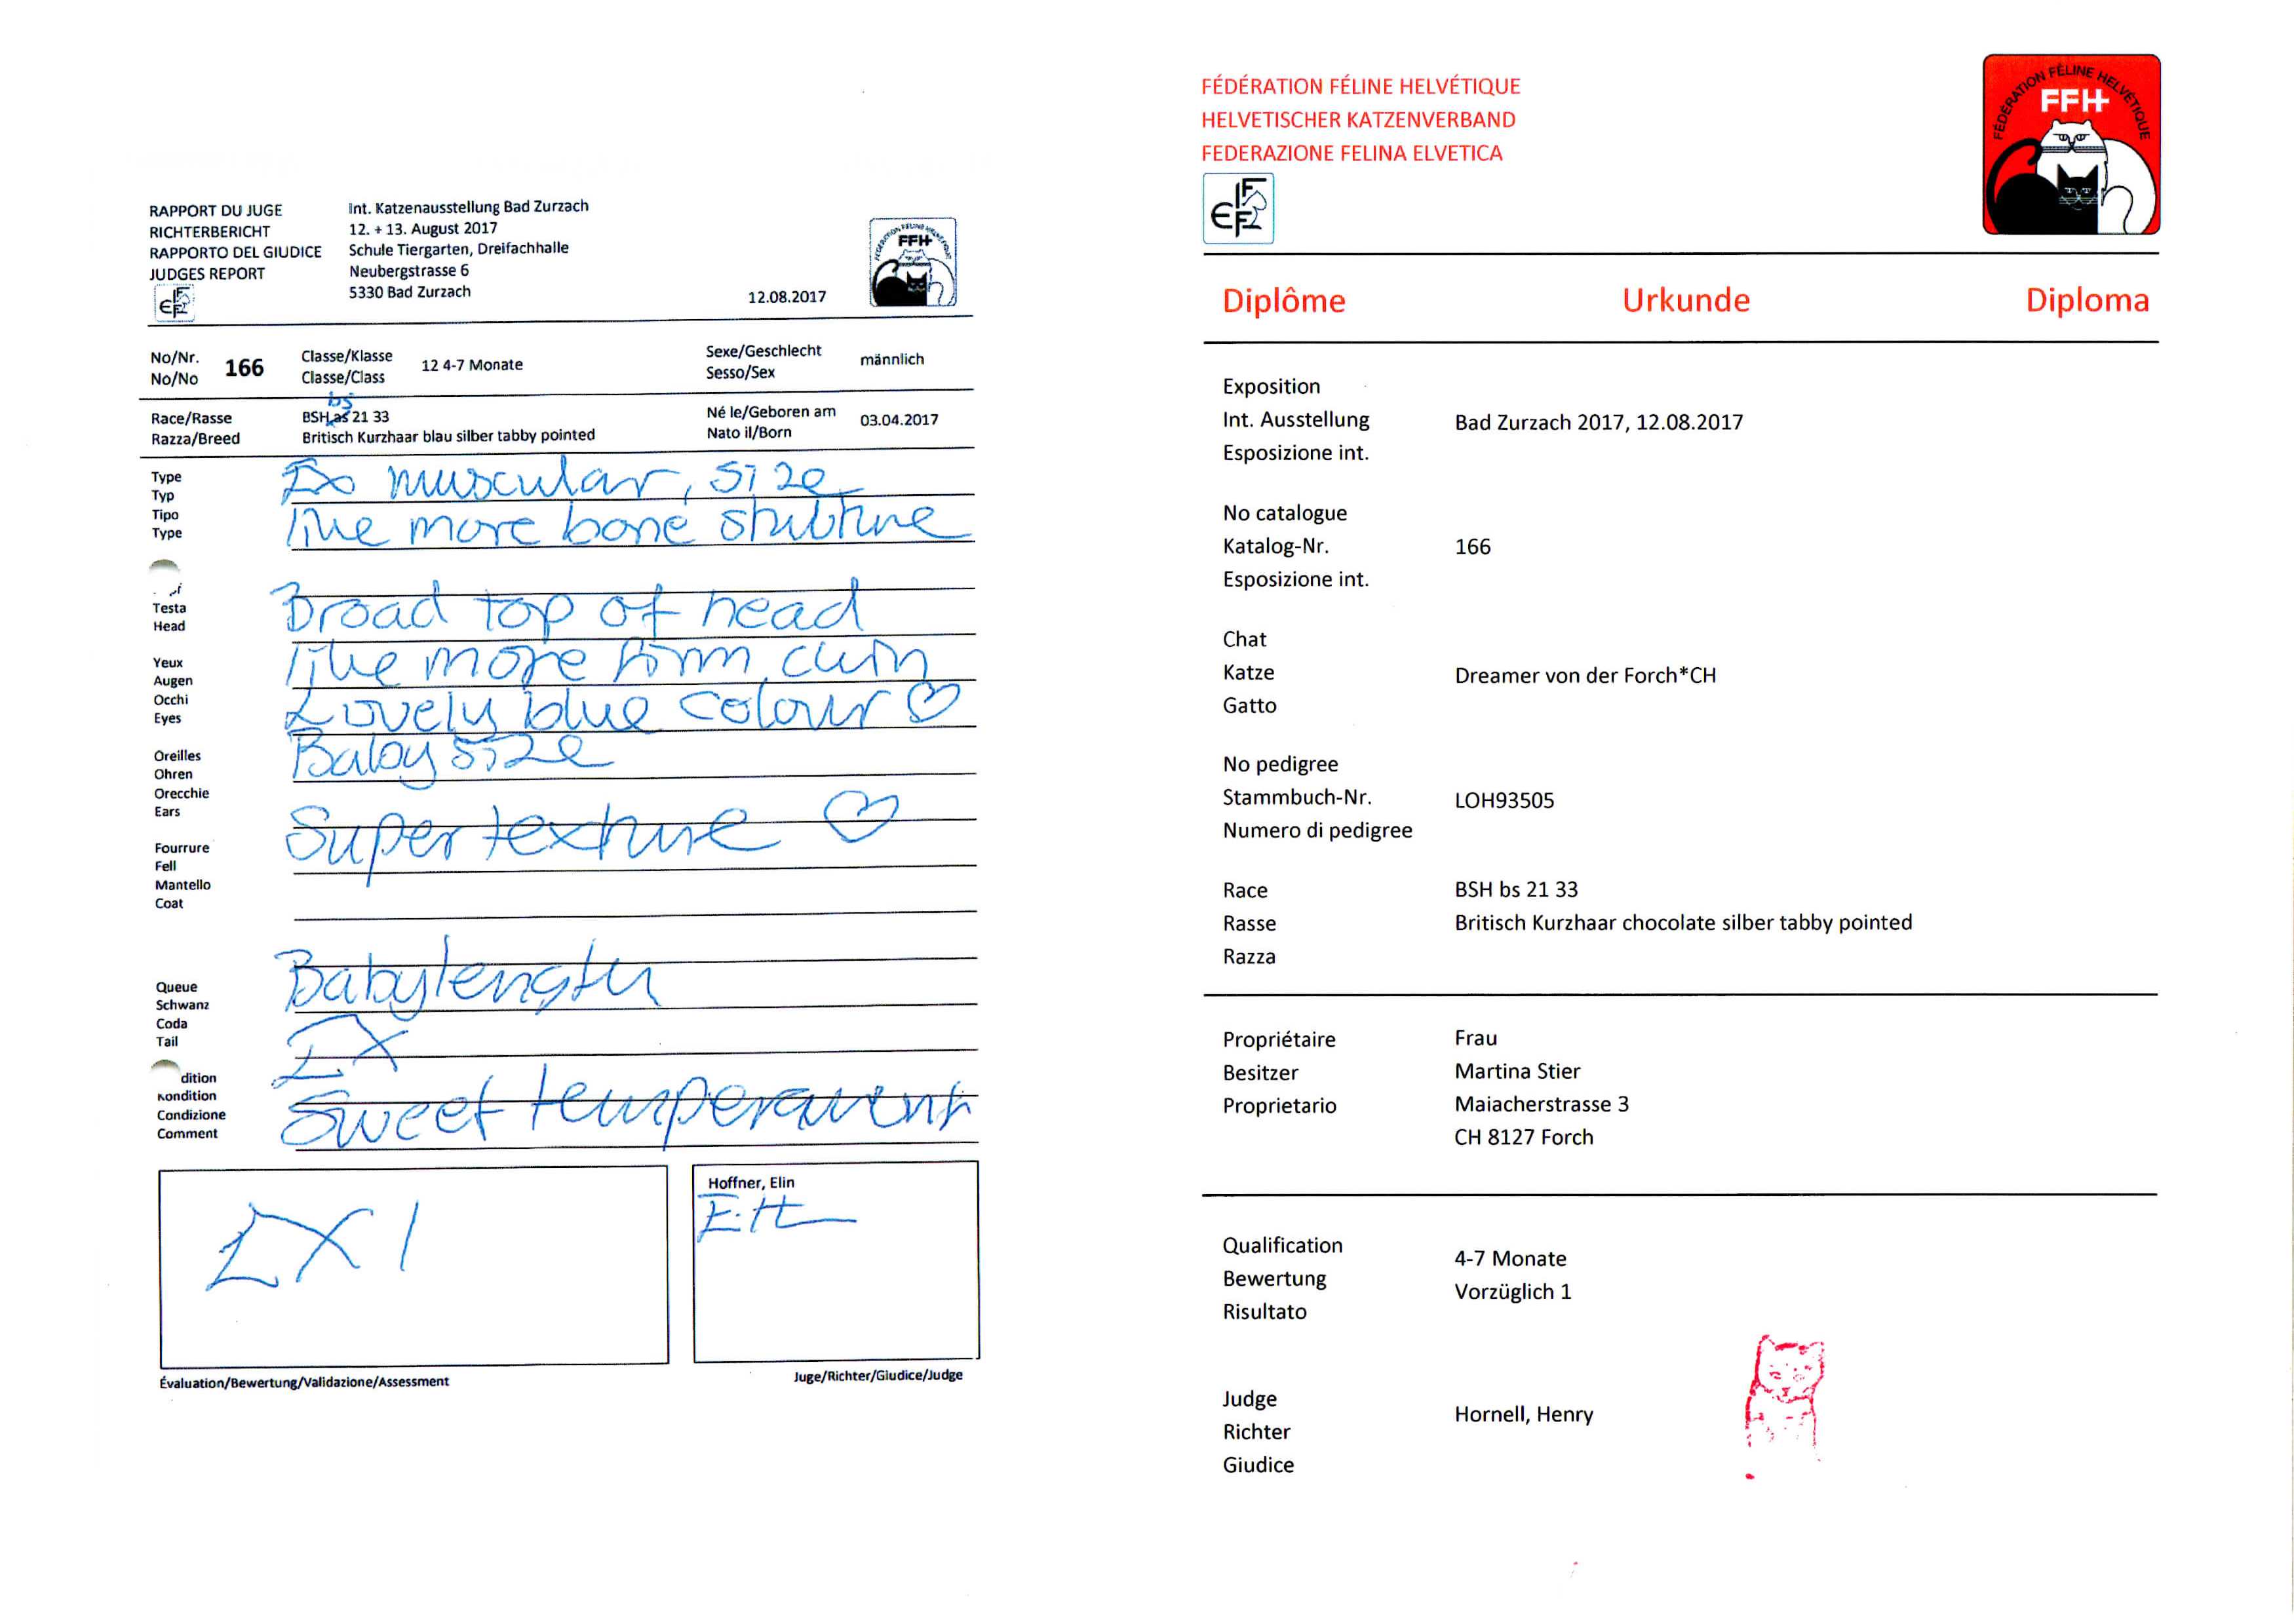 RAPPORT DU JUGE
RICHTERBERICHT
RAPPORTO DEL GIUDICE
JUDGES REPORT
FIFe
Int. Katzenausstellung Bad Zurzach
12. + 13. August 2017
Schule Tiergarten, Dreifachhalle
Neubergstrasse 6
5330 Bad Zurzach
12.08.2017
FÉDÉRATION FÉLINE HELVÉTIQUE
FFH
No/Nr.
No/No
166
Classe/Klasse
Classe/Class
12 4-7 Monate
Sexe/Geschlecht
Sesso/Sex
männlich
Race/Rasse
Razza/Breed
bs
BSH as 21 33
Britisch Kurzhaar blau silber tabby pointed
Né le/Geboren am
Nato il/Born
03.04.2017
Type
Typ
Tipo
Type
Ex muscular, size
like more bone
Testa
Head
Broad top of head
like more firm chin
Yeux
Augen
Occhi
Eyes
Lovely blue colour ♡
Oreilles
Ohren
Orecchie
Ears
Baby size
Fourrure
Fell
Mantello
Coat
Super texture ♡
Queue
Schwanz
Coda
Tail
Babylength
dition
Kondition
Condizione
Comment
EX
Sweet temperament
EX 1
Hoffner, Elin
E.H
Évaluation/Bewertung/Validazione/Assessment
Juge/Richter/Giudice/Judge
FÉDÉRATION FÉLINE HELVÉTIQUE
HELVETISCHER KATZENVERBAND
FEDERAZIONE FELINA ELVETICA
FIFe
FÉDÉRATION FÉLINE HELVÉTIQUE
FFH
Diplôme Urkunde Diploma
Exposition
Int. Ausstellung Bad Zurzach 2017, 12.08.2017
Esposizione int.
No catalogue
Katalog-Nr. 166
Esposizione int.
Chat
Katze Dreamer von der Forch*CH
Gatto
No pedigree
Stammbuch-Nr. LOH93505
Numero di pedigree
Race BSH bs 21 33
Rasse Britisch Kurzhaar chocolate silber tabby pointed
Razza
Propriétaire Frau
Besitzer Martina Stier
Proprietario Maiacherstrasse 3
CH 8127 Forch
Qualification
Bewertung
Risultato
4-7 Monate
Vorzüglich 1
Judge
Richter
Giudice
Hornell, Henry